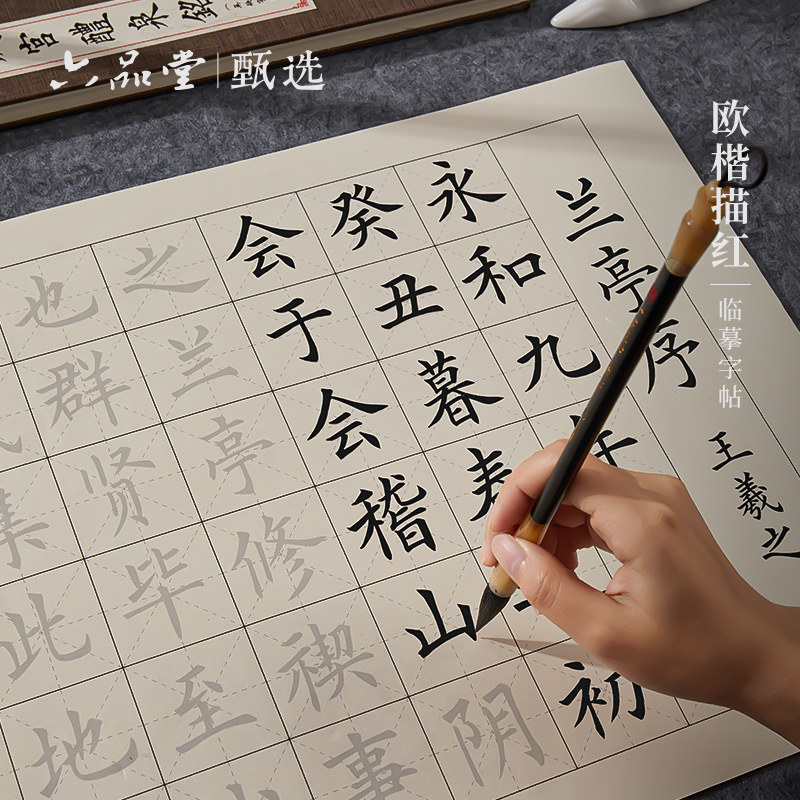 宫醴泉銘
六品堂|甄选
欧楷描红|临摹字帖
兰亭序
王羲之
永和九年
癸丑暮春初
会于会稽山阴
之兰亭修禊事
也群贤毕至
集此地